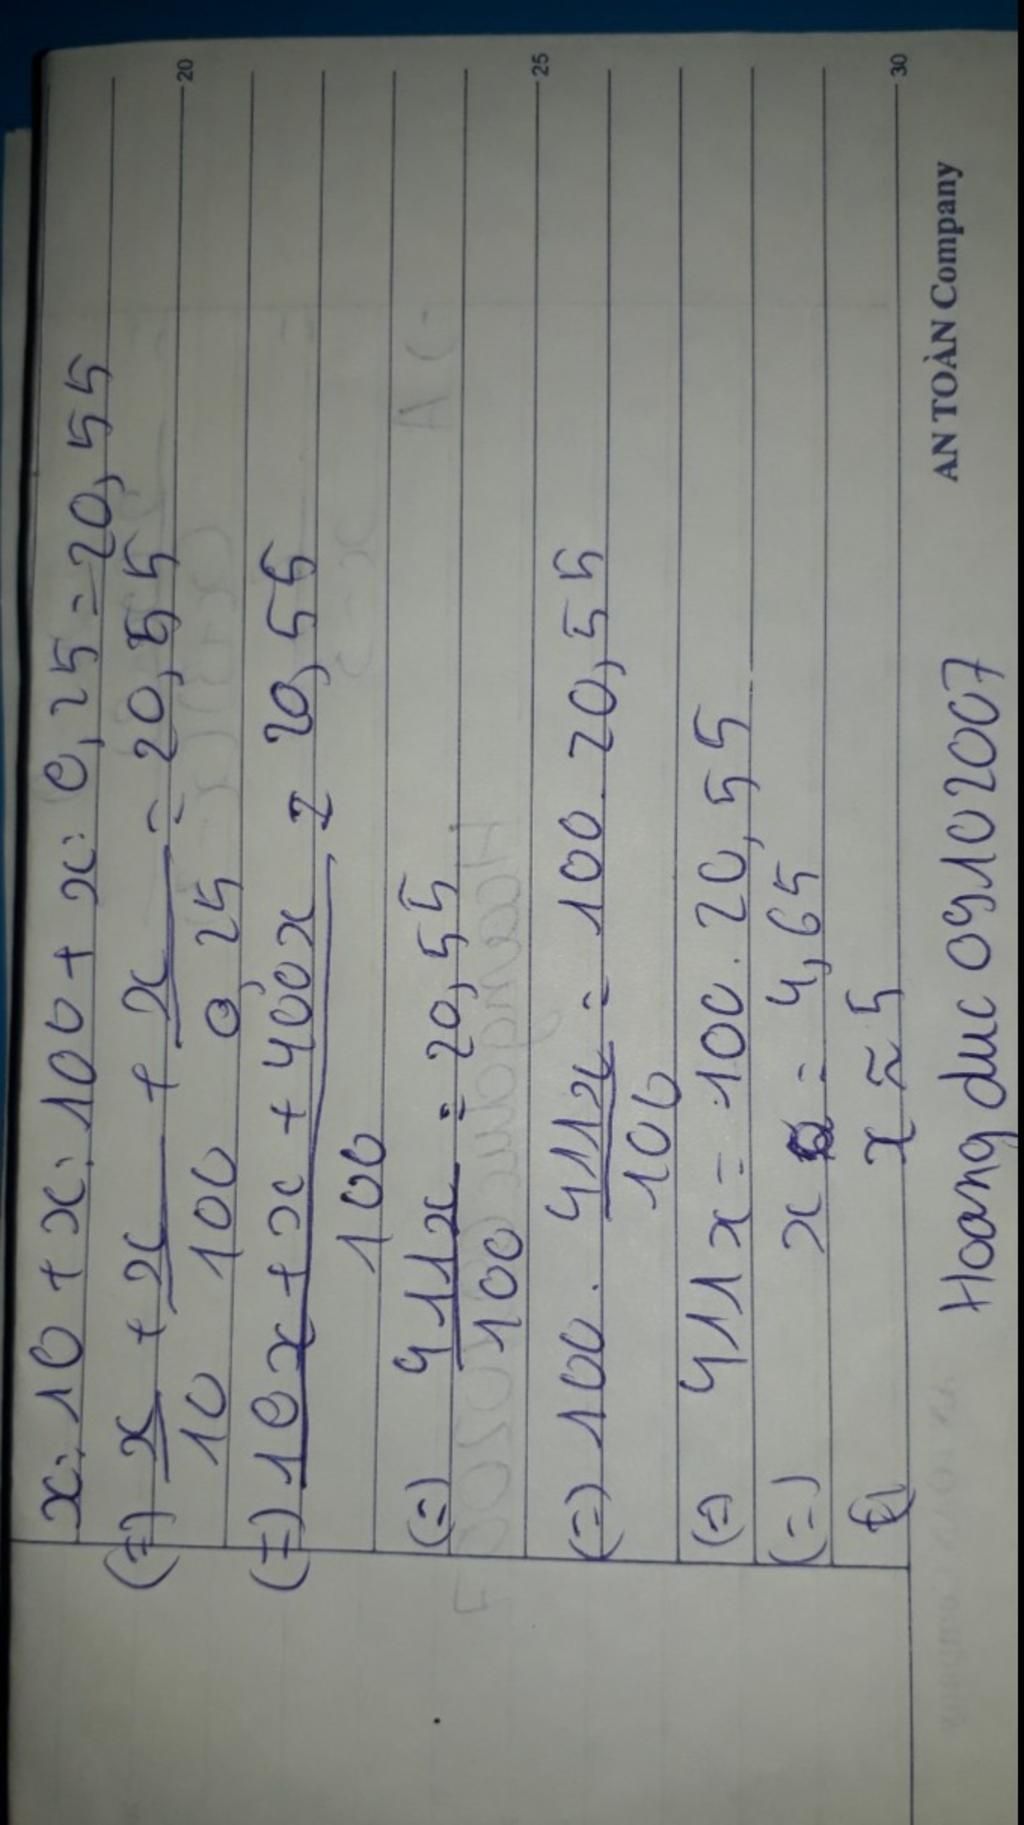 x:10+x:100+x:0,25=20,55
(=) x/10 + x/100 + x/0,25 = 20,55
20
(=) 10x+x+400x/100 = 20,55
(=) 411x/100 = 20,55
25
(=) 100. 411x/100 = 100.20,55
(=) 411x=100.20,55
(=) x = 4,65
x ≈ 5
30
AN TOÀN Company
Hoang duc 09102007